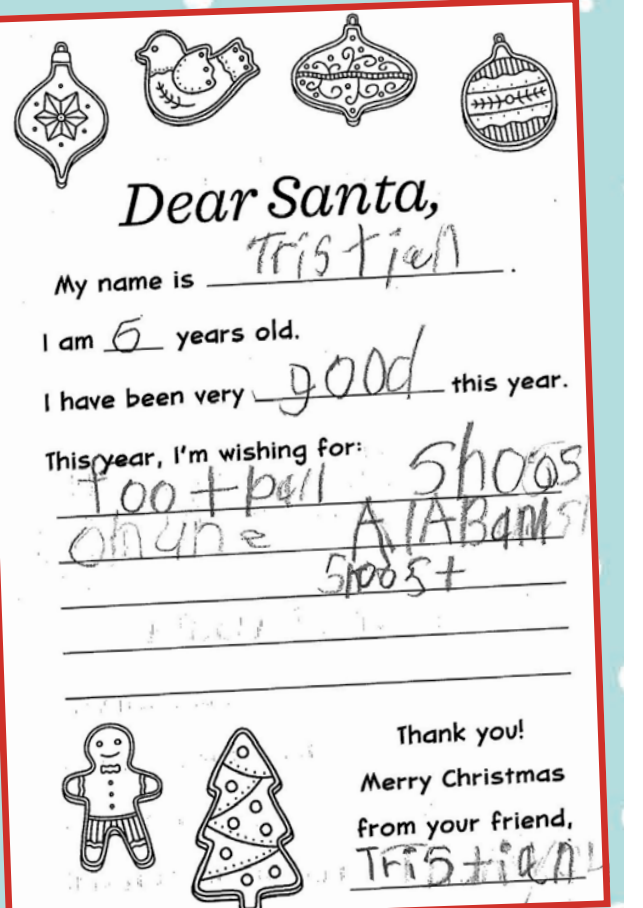 Dear Santa,
My name is Tristian.
I am 5 years old.
I have been very good this year.
This year, I'm wishing for:
football shoos
AlABama
shoost
Thank you!
Merry Christmas
from your friend,
Tristian